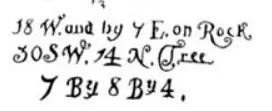 18 W. and by 7 E. on Rock
30 S W. 14 N. Tree
7 By 8 By 4.